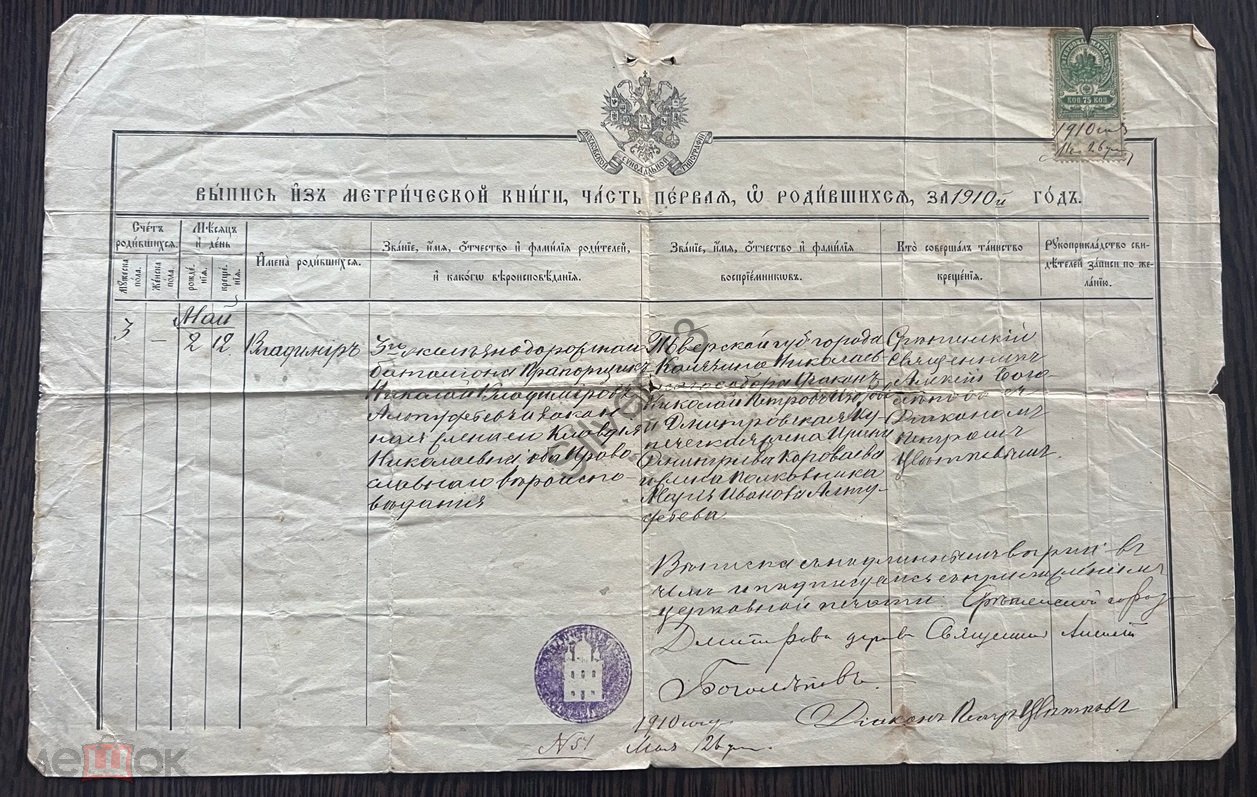 МОСКОВСКОЙ СУНОДАЛЬНОЙ ТИПОГРАФІИ
ГЕРБОВАЯ МАРКА
КОП 75 КОП
1910 года
Мая 26 дня
ВЫПИСЬ ИЗЪ МЕТРИЧЕСКОЙ КНИГИ, ЧАСТЬ ПЕРВАЯ, Ѡ РОДИВШИХСЯ, ЗА 1910й ГОДЪ.
Счетъ родившихся.
Мужеска пола.
Женска пола.
Мѣсяцъ и день
рожденія.
крещенія.
Имена родившихся.
Званіе, имя, отчество и фамилія родителей,
и какогѡ вѣроисповѣданія.
Званіе, имя, отчество и фамилія
воспріемниковъ.
Кто совершалъ таинство
крещенія.
Рукоприкладство сви-
дѣтелей записи по же-
ланію.
Май
3 – 2 12
Владиміръ
3го желѣзнодорожнаго
баталіона Прапорщикъ
Николай Владиміровъ
Алтуфьевъ и закон
ная жена его Клавдія
Николаевна; оба Право
славнаго вѣроиспо
вѣданія
Тверской губ города
Калязина Николаев
скаго собора Діаконъ
Николай Петровъ
и Дмитровская Ку
печеская Ирина
Димитріева Короваева
и жена Полковника
Марія Иванова Алту
фьева.
Срѣтенскій
Священникъ
Алексій Бого
лѣповъ съ
Діакономъ
Петромъ
Цвѣтковымъ.
Выписка съ подлиннымъ вѣрна въ
чемъ и подписуемся съ приложеніемъ
церковной печати: Срѣтенской город
Дмитрова церкви Священникъ Алексій
Боголѣповъ.
Діаконъ Петръ Цвѣтковъ
1910 году
Мая 26 дня.
N 51
лешок